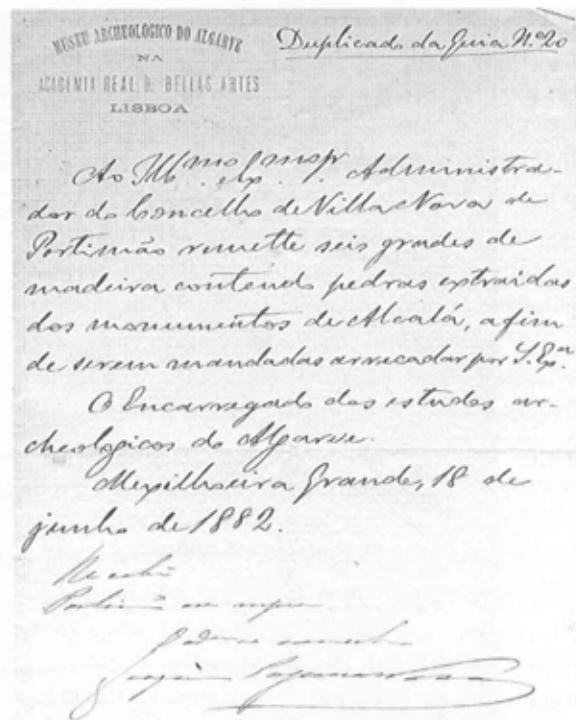 MUSEU ARCHEOLOGICO DO ALGARVE
NA
ACADEMIA REAL D. BELLAS ARTES
LISBOA
Duplicado da Guia Nº 20
Ao Illmo Exmo Sr. Administra-
dor do Concelho de Villa Nova de
Portimão remette seis grades de
madeira contendo pedras extraidas
dos monumentos de Alcalá, afim
de serem mandadas arrecadar por S. Exa.
O Encarregado dos estudos ar-
cheologicos do Algarve.
Mexilhoeira Grande, 18 de
junho de 1882.
Recebi
Portimão